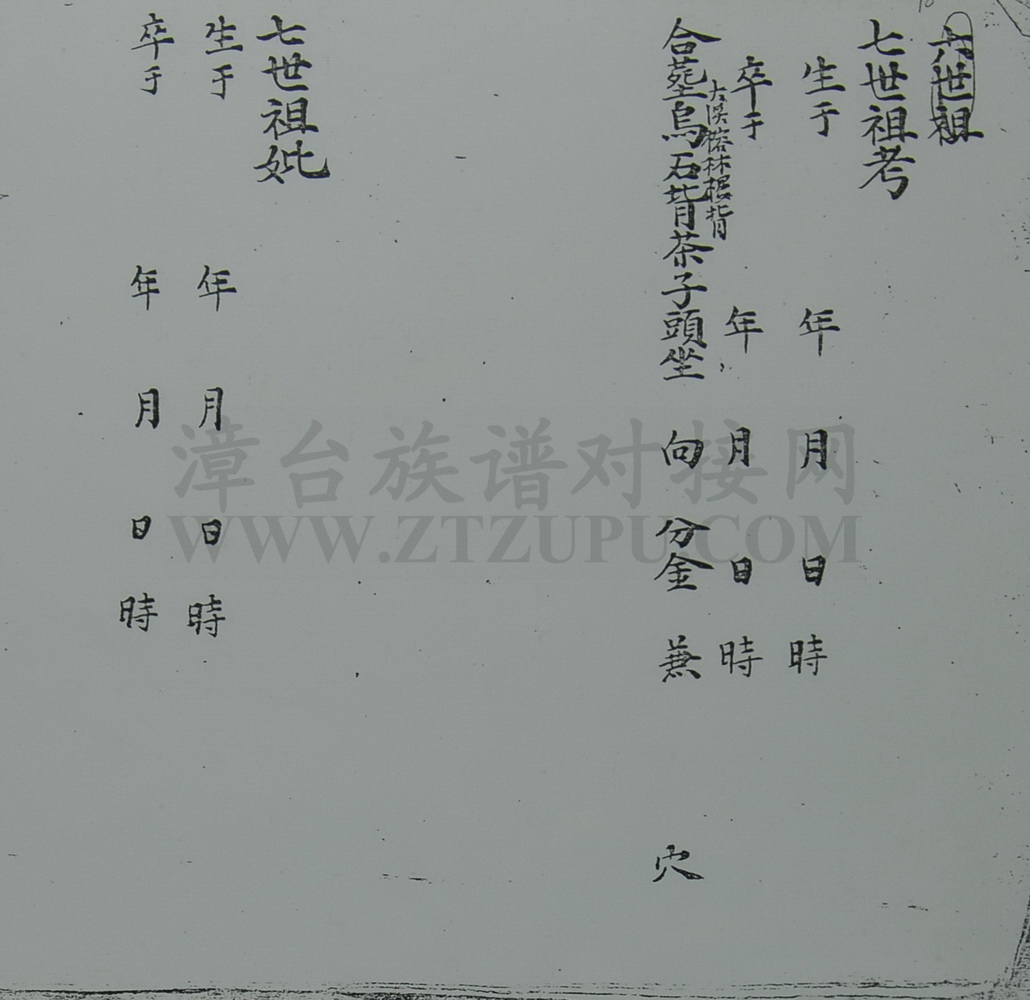 六世祖
七世祖考
生于 年 月 日 時
卒于 年 月 日 時
大溪榕林楻背
合塟烏石背茶子頭坐 向 分金 兼 穴
七世祖妣
生于 年 月 日 時
卒于 年 月 日 時
漳台族谱对接网
WWW.ZTZUPU.COM